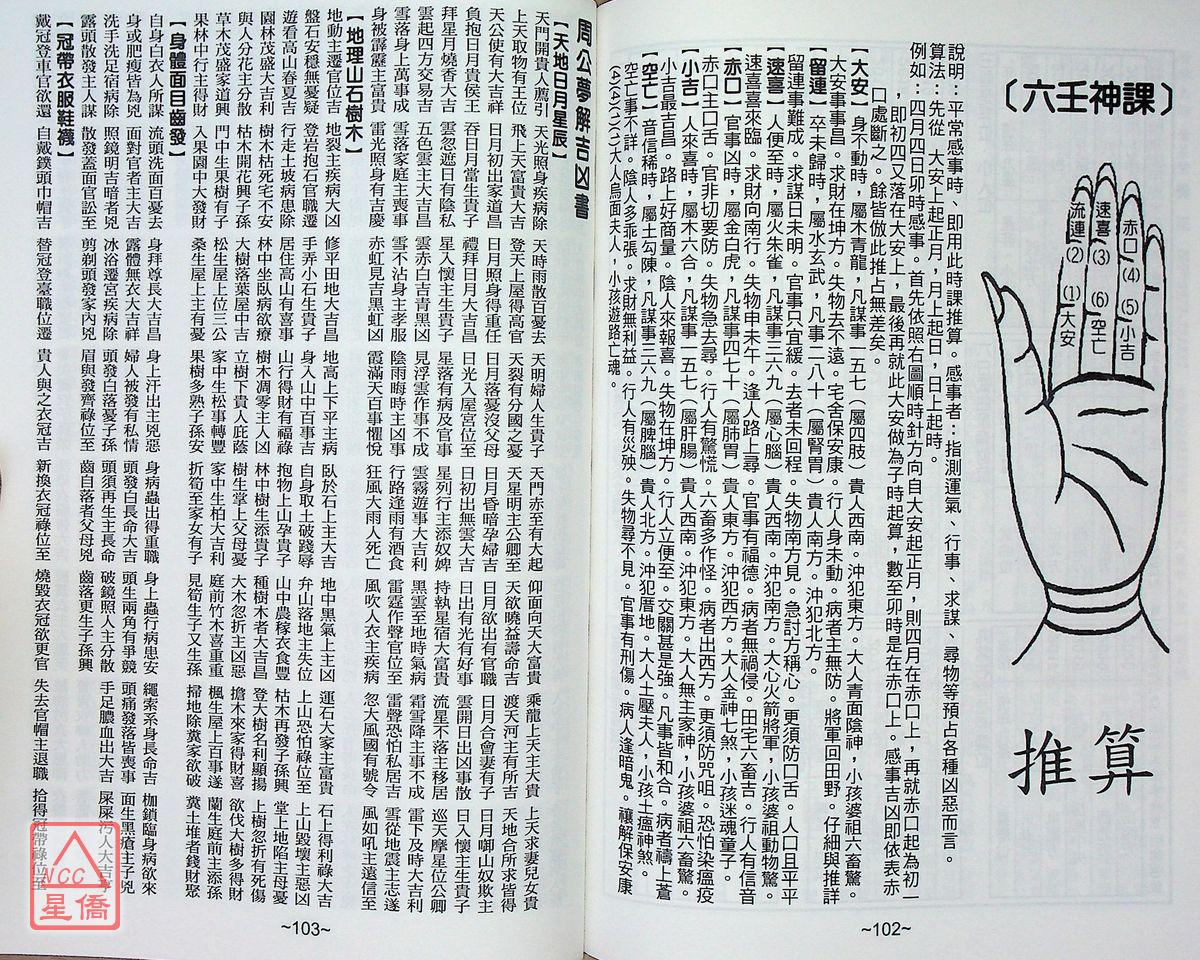 〔六壬神課〕
流連
速喜
赤口
(2)
(3)
(4)
(1)
(6)
(5)
大安
空亡
小吉
推算
說明：平常感事時、即用此時課推算。感事者：指測運氣、行事、求謀、尋物等預占各種凶惡而言。
算法：先從　大安上起正月，月上起日，日上起時。
例如：四月四日卯時感事。首先依照右圖順時針方向自大安起正月，則四月在赤口上，再就赤口起為初一
，即初四又落在大安上，最後再就此大安做為子時起算，數至卯時是在赤口上。感事吉凶即依表赤
口處斷之。餘皆倣此推占無差矣。
【大安】身不動時，屬木青龍，凡謀事一五七（屬四肢）貴人西南。沖犯東方。大人青面陰神，小孩婆祖六畜驚。
大安事事昌。求財在坤方。失物去不遠。宅舍保安康。行人身未動。病者主無防。將軍回田野。仔細與推詳
【留連】卒未歸時，屬水玄武，凡事二八十（屬腎胃）貴人南方。沖犯北方。
留連事難成。求謀日未明。官事只宜緩。去者未回程。失物南方見。急討方稱心。更須防口舌。人口且平平
【速喜】人便至時，屬火朱雀，凡謀事三六九（屬心腦）貴人西南。大心火箭將軍，小孩婆祖動物驚。
速喜喜來臨。求財向南行。失物申未午。逢人路上尋。官事有福德。病者無禍侵。田宅六畜吉。行人有信音
【赤口】官事凶時，屬金白虎，凡謀事四七十（屬肺胃）貴人東方。沖犯西方。大人金神七煞，小孩迷魂童子。
赤口主口舌。官非切要防。失物急去尋。行人有驚慌。六畜多作怪。病者出西方。更須防咒咀。恐怕染瘟疫
【小吉】人來喜時，屬木六合，凡謀事一五七（屬肝腸）貴人西南。沖犯東方。大人無主家神，小孩婆祖六畜驚。
小吉最吉昌。路上好商量。陰人來報喜。失物在坤方。行人立便至。交關甚是強。凡事皆和合。病者禱上蒼
【空亡】音信稀時，屬土勾陳，凡謀事三六九（屬脾腦）貴人北方。沖犯厝地。大人土壓夫人，小孩土瘟神煞。
空亡事不詳。陰人多乖張。求財無利益。行人有災殃。失物尋不見。官事有刑傷。病人逢暗鬼。禳解保安康
(4)(6)(1)(1)大人烏面夫人，小孩遊路亡魂。
~102~
周公夢解吉凶書
【天地日月星辰】
天門開貴人薦引　天光照身疾病除　天時雨散百憂去　天明婦人生貴子　天門赤至有大起　仰面向天大富貴　乘龍上天主大貴　上天求妻兒女貴
上天取物有王位　飛上天富貴大吉　登天上屋得高官　天裂有分國之憂　天星明主公卿至　天欲曉益壽命吉　渡天河主有所吉　天地合所求皆得
天公使有大吉祥　日月初出家道昌　日月照身得重任　日月落憂沒父母　日月昏暗孕婦吉　日月欲出有官職　日月合會妻有子　日月啣山奴欺主
負抱日月貴侯王　吞日月當生貴子　禮拜日月大吉昌　日光入屋宮位至　日初出無雲大吉　日出有光有好事　雲開日出凶事散　日入懷主生貴子
拜星月燒香大吉　雲忽遮日有陰私　星入懷主生貴子　星落有病及官事　星列行主添奴婢　持執星宿大富貴　流星不落主移居　巡天摩星位公卿
雲起四方交易吉　五色雲主大吉昌　雲赤白吉青黑凶　見浮雲作事不成　雲霧遊事大吉利　黑雲至地時氣病　霜雪降主事不成　雷下及時大吉利
雪落身上萬事成　雪落家庭主喪事　雪不沾身主孝服　陰雨晦時主凶事　行路逢雨有酒食　雷霆作聲官位至　雷聲恐怕私居吉　雲從地震主志遂
身被霹靂主富貴　雷光照身有吉慶　赤虹見吉黑虹凶　霞滿天百事懽悅　狂風大雨人死亡　風吹人衣主疾病　忽大風國有號令　風如吼主遠信至
【地理山石樹木】
地動主遷官位吉　地裂主疾病大凶　修平田地大吉昌　地高上下平主病　臥於石上主大吉　地中黑氣上主凶　運石大家主富貴　石上得利祿大吉
盤石安穩無憂疑　登岩抱石官職遷　手弄小石生貴子　身入山中百事吉　自身取土破踐辱　弁山落地主失位　上山恐怕祿位至　上山毀壞主惡凶
遊看高山春夏吉　行走土坡病患除　居住高山有喜事　山行得財有福祿　抱物上山孕貴子　山中農稼衣食豐　枯木再發子孫興　堂上地陷主母憂
園林茂盛大吉利　樹木枯死宅不安　林中坐臥病欲療　樹木凋零主人凶　林中樹生添貴子　種樹木者大吉昌　登大樹名利顯揚　上樹忽折有死傷
與人分花主分散　枯木開花興子孫　大樹落葉屋中吉　立樹下貴人庇蔭　樹生堂上父母憂　大木忽折主凶惡　擔木來家得財喜　欲伐大樹多得財
草木茂盛家道興　門中生果樹有子　松生屋上位三公　家中生松事轉豐　家中生柏大吉利　庭前竹木喜重重　楓生屋上百事遂　蘭生庭前主添孫
果林中行主得財　入果園中大發財　桑生屋上主有憂　果樹多熟子孫安　折筍至家女有子　見筍生子又生孫　掃地除糞家欲破　糞土堆者錢財聚
【身體面目齒發】
自身白衣人所謀　流頭洗面百憂去　身拜尊長大吉昌　身上汗出主兇惡　身病蟲出得重職　身上蟲行病患安　繩索系身長命吉　枷鎖臨身病欲來
身或肥瘦皆為兇　面對官者主大吉　露體無衣大吉祥　婦人被發有私情　頭發白長命大吉　頭生兩角有爭競　頭痛發落皆喪事　面生黑瘡主子兇
洗手洗足宿病除　照鏡明吉暗者兇　冰浴遷宮疾病除　頭發白落憂子孫　頭須再生主長命　破鏡照人主分散　手足膿血出大吉　屎屎污人大吉亨
露頭散發主人謀　散發蓋面官訟至　剪剃頭發家內兇　眉與發齊祿位至　齒自落者父母兇　齒落更生子孫興
【冠帶衣服鞋襪】
戴冠登車官欲還　自戴鏷頭巾帽吉　替冠登臺職位遷　貴人與之衣冠吉　新換衣冠祿位至　燒毀衣冠欲更官　失去官帽主退職　拾得冠帶祿位至
~103~
NCC
星僑